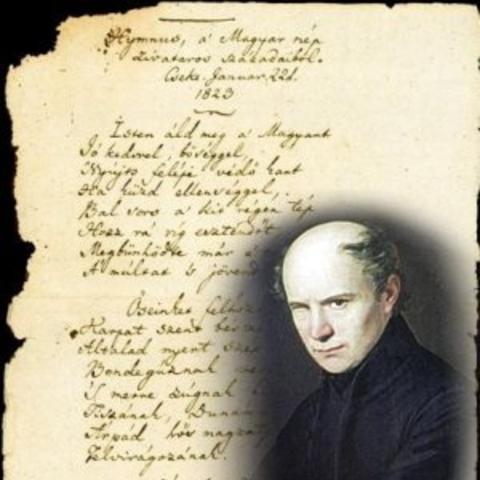 Hymnus, a' Magyar nép
zivataros századaiból.
Cseke. Januar. 22d.
1823
Isten áld meg a' Magyart
Jó kedvvel, bőséggel,
Nyújts feléje védő kart
Ha küzd ellenséggel,
Bal sors a' kit régen tép
Hozz rá víg esztendőt
Megbünhödte már
A' múltat 's jövend
Őseinket felho
Kárpát szent bér
Általad nyert szé
Bendegúznak
'S merre zúgnak
Tiszának, Duná
Árpád hős magza
Felvirágozának.